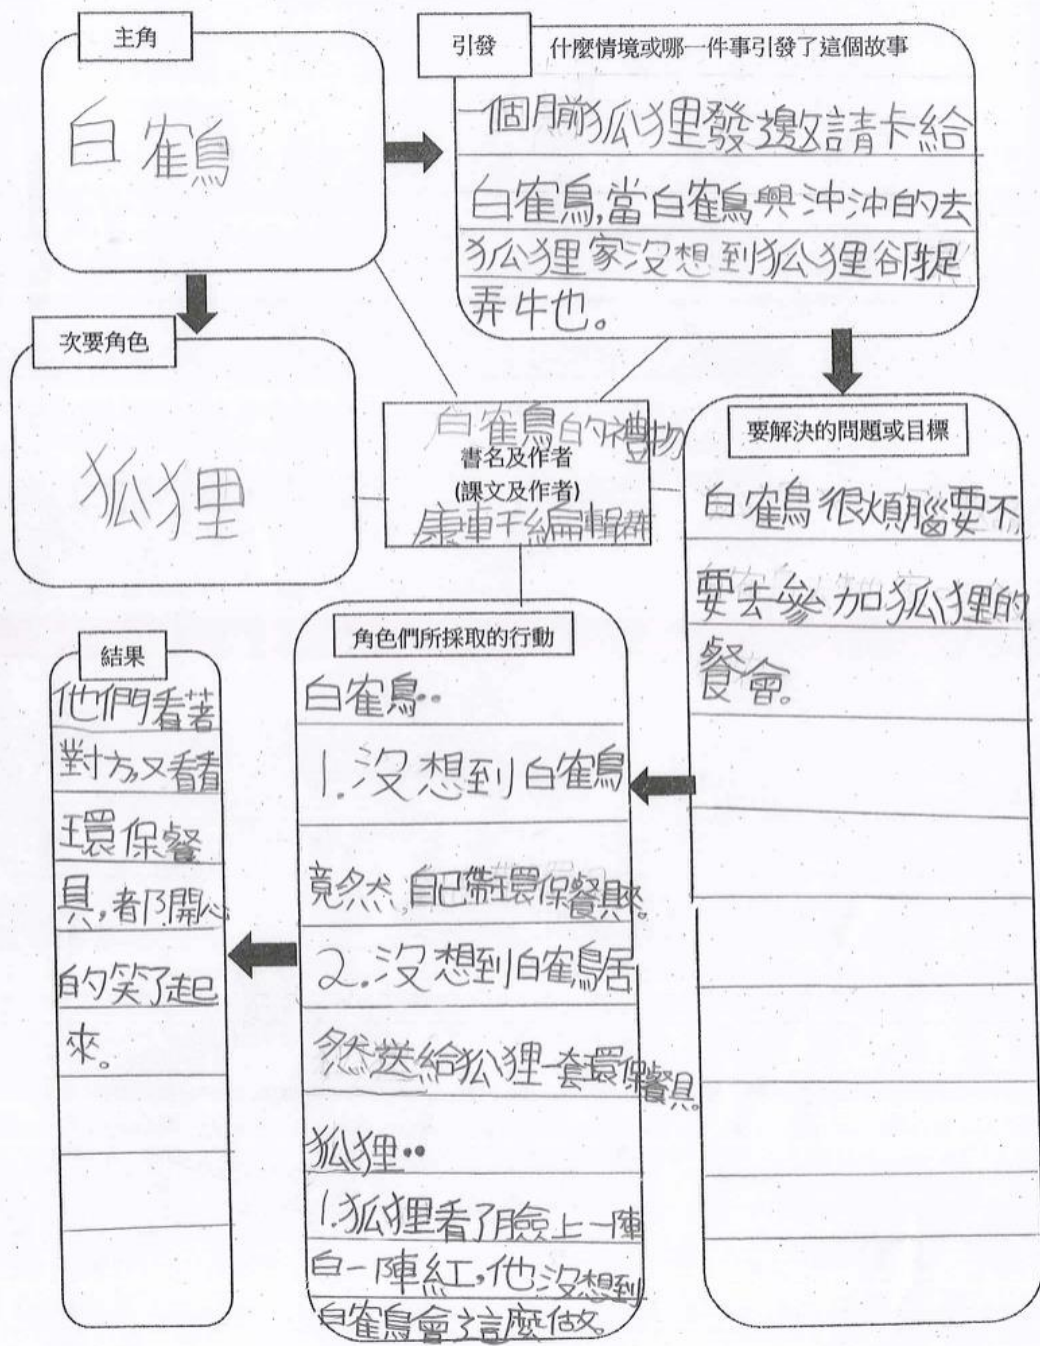 主角
白鶴
引發
什麼情境或哪一件事引發了這個故事
一個月前狐狸發邀請卡給
白鶴,當白鶴興沖沖的去
狐狸家沒想到狐狸卻捉
弄牠。
次要角色
狐狸
白鶴的禮物
書名及作者
(課文及作者)
康軒編輯群
要解決的問題或目標
白鶴很煩腦要不
要去參加狐狸的
餐會。
角色們所採取的行動
白鶴:
1.沒想到白鶴
竟然自己帶環保餐具來。
2.沒想到白鶴居
然送給狐狸一套環保餐具。
狐狸:
1.狐狸看了臉上一陣
白一陣紅,他沒想到
白鶴會這麼做。
結果
他們看著
對方,又看看
環保餐
具,都開心
的笑了起
來。